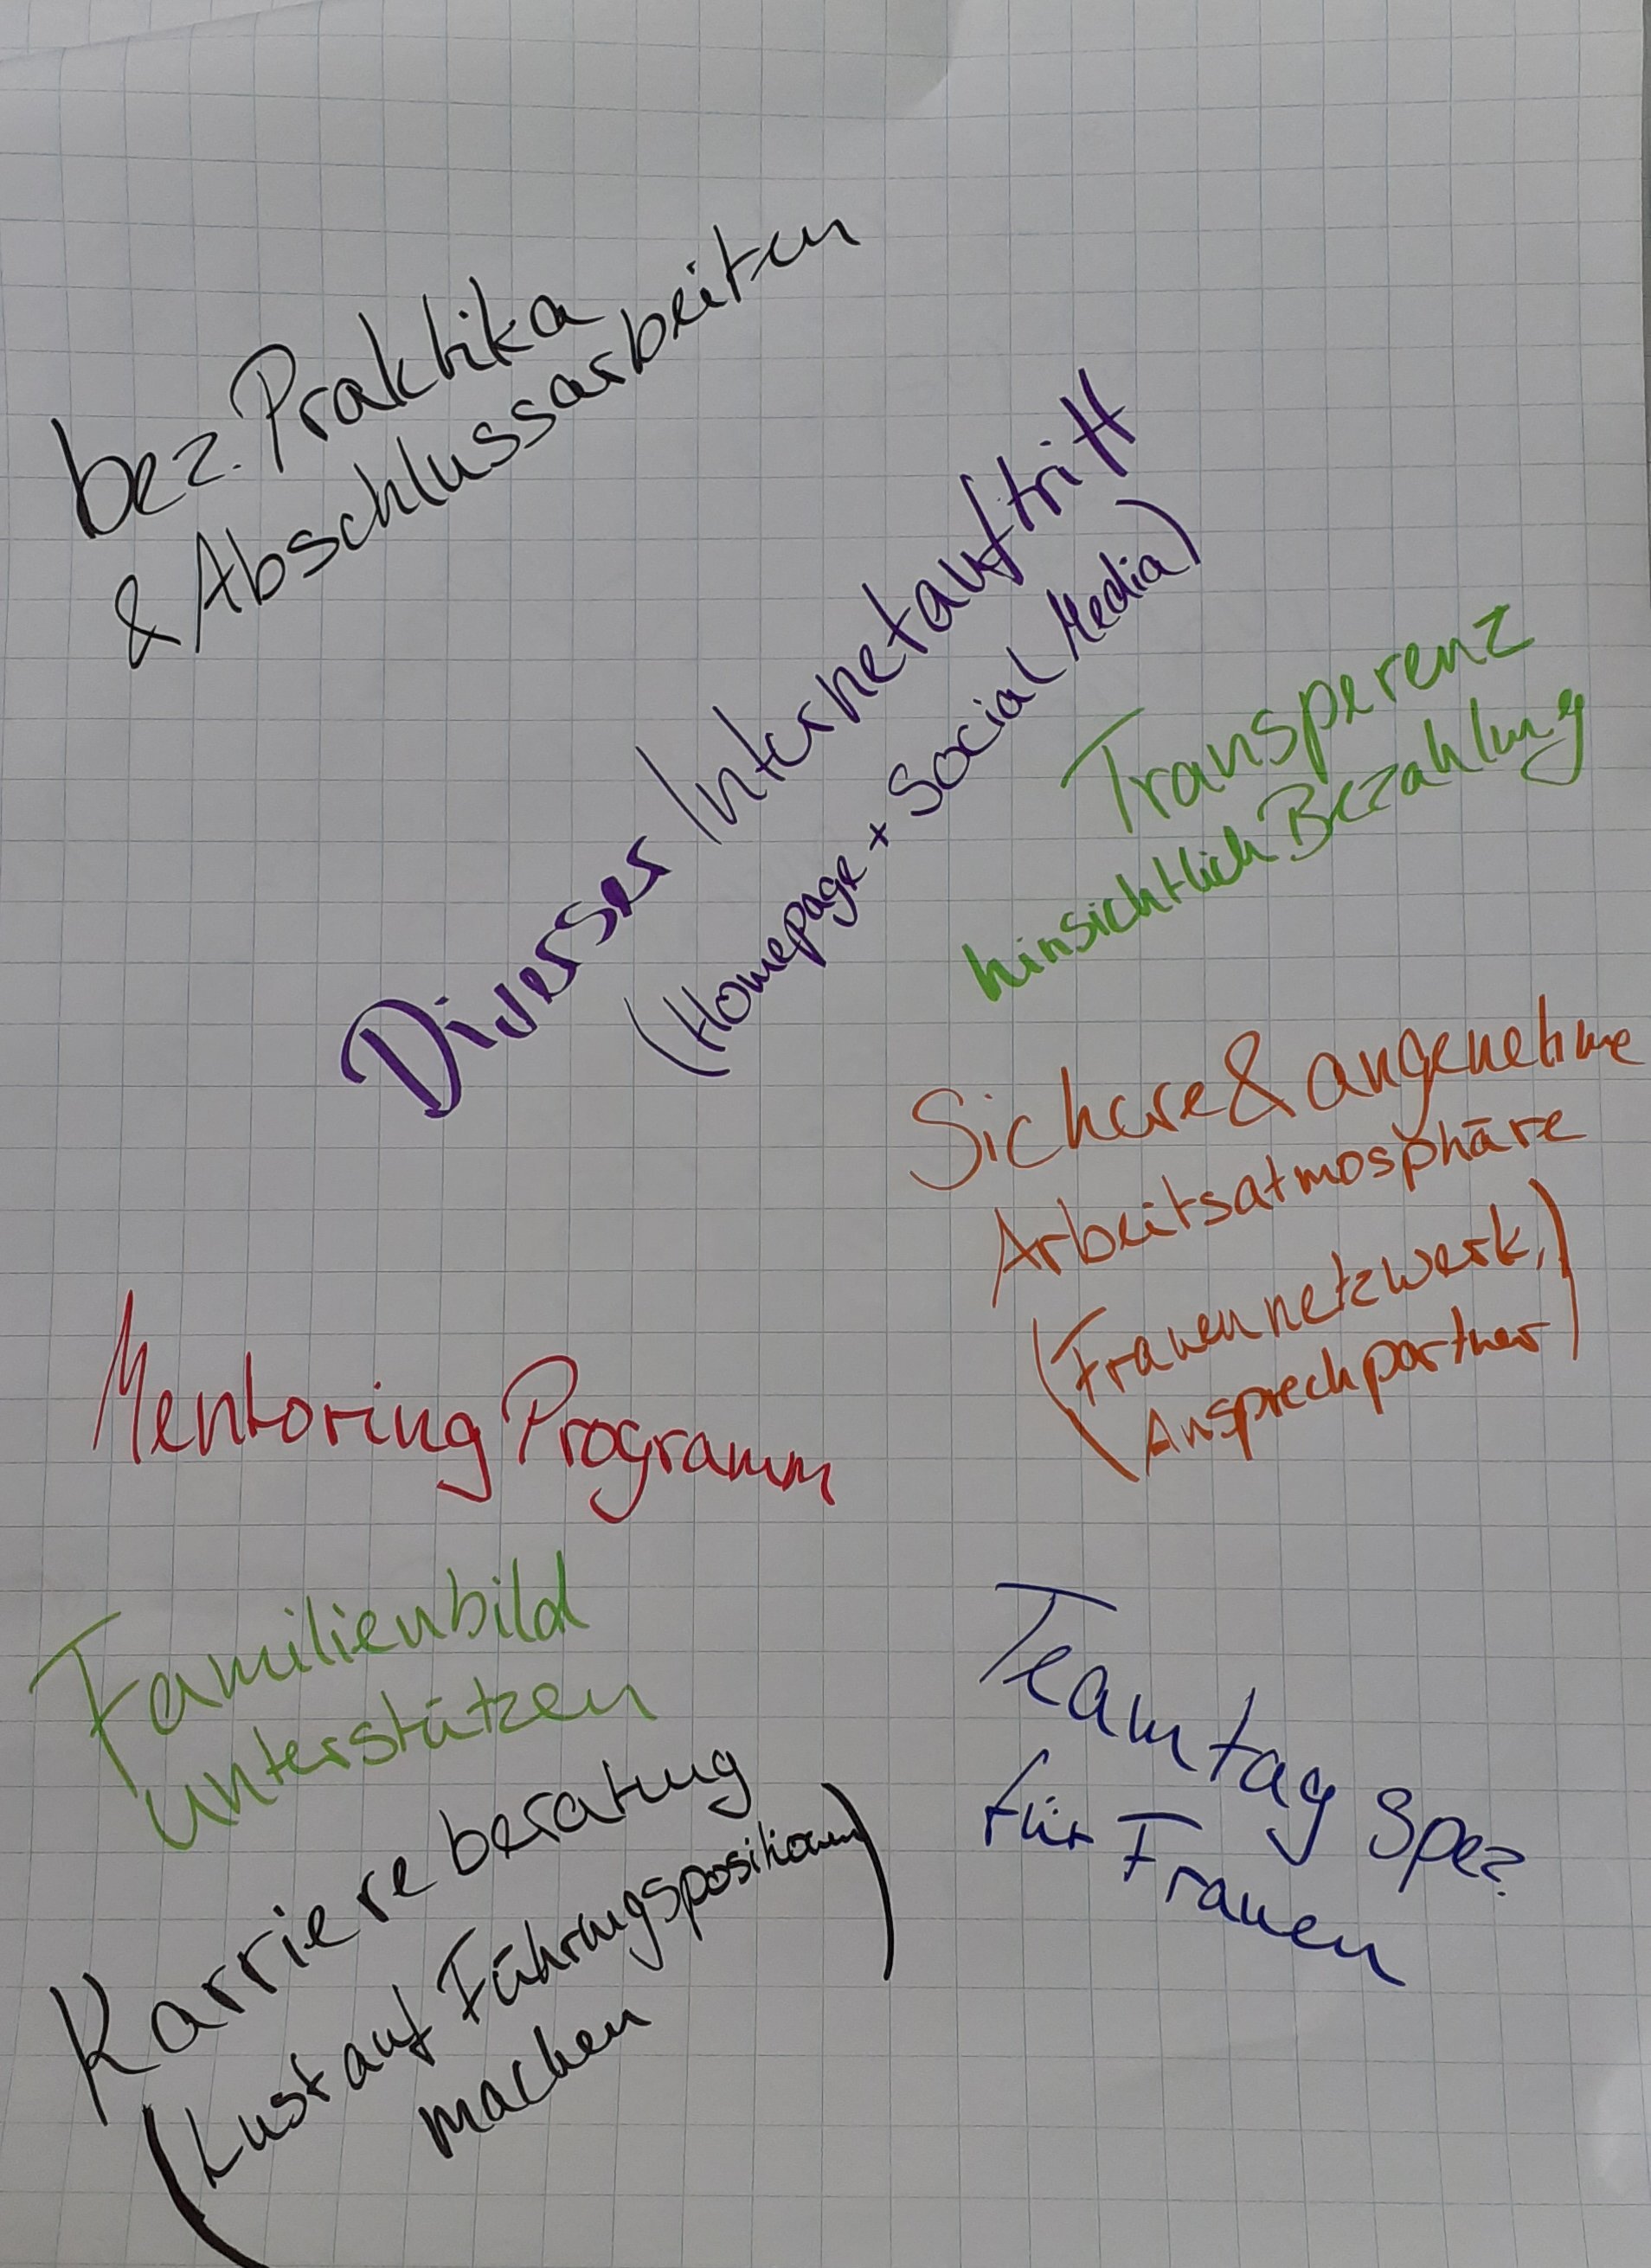 bez. Praktika
& Abschlussarbeiten
Diverser Internetauftritt
(Homepage + Social Media)
Transperenz
hinsichtlich Bezahlung
Sichere & angenehme
Arbeitsatmosphäre
(Frauennetzwerk,
Ansprechpartner)
Mentoring Programm
Familienbild
unterstützen
Teamtag spez
für Frauen
Karriereberatung
(Lust auf Führungspositionen)
machen